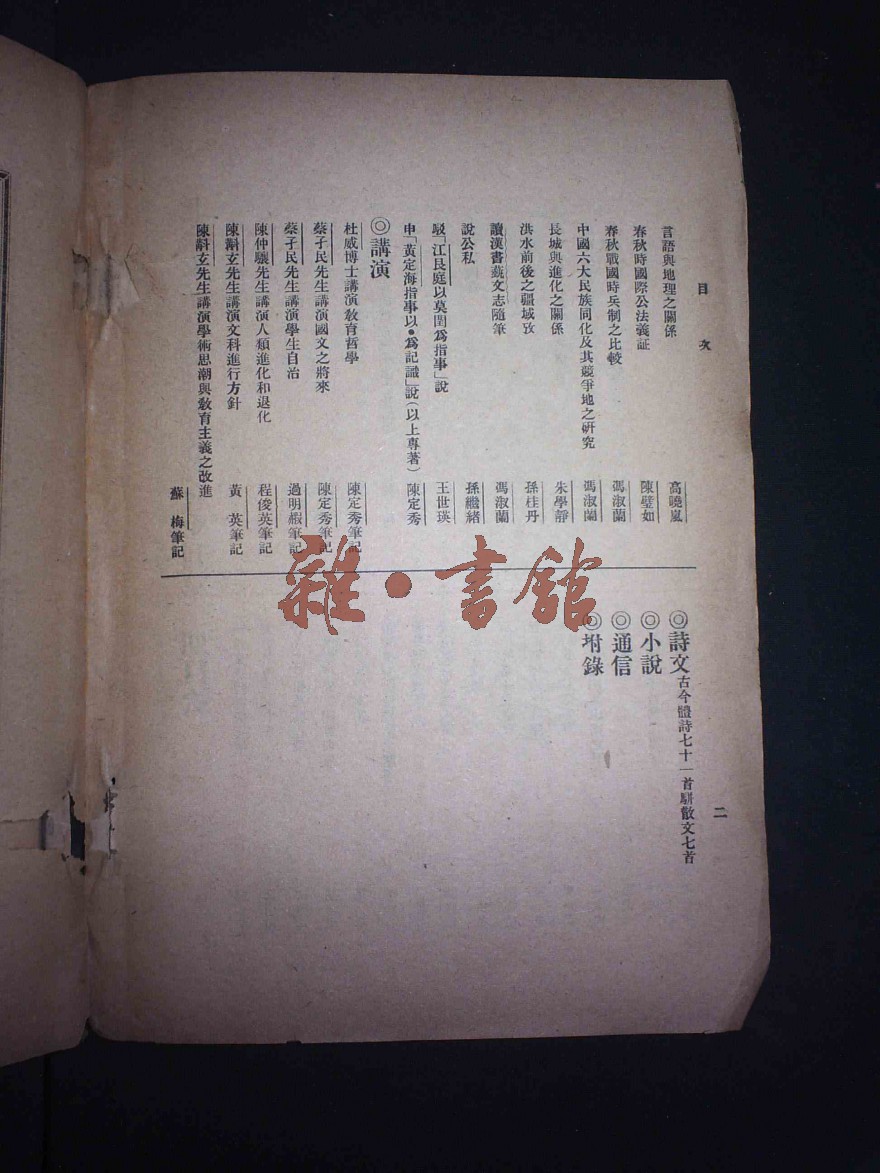 目次
言語與地理之關係 高曉嵐
春秋時國際公法義証 陳璧如
春秋戰國時兵制之比較 馮淑蘭
中國六大民族同化及其競爭地之研究 馮淑蘭
長城與進化之關係 朱學靜
洪水前後之疆域攷 孫桂丹
讀漢書藝文志隨筆 馮淑蘭
說公私 孫繼緒
駁「江艮庭以莫閏爲指事」說 王世瑛
申「黃定海指事以•爲記識」說(以上專著) 陳定秀
◎講演
杜威博士講演教育哲學 陳定秀筆記
蔡孑民先生講演國文之將來 陳定秀筆記
蔡孑民先生講演學生自治 過明霞筆記
陳仲驤先生講演人類進化和退化 程俊英筆記
陳斠玄先生講演文科進行方針 黃英筆記
陳斠玄先生講演學術思潮與教育主義之改進 蘇梅筆記
◎詩文 古今體詩七十一首駢散文七首
◎小說
◎通信
◎坿錄
二
雜•書館